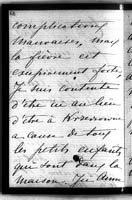 complications
mauvaises, mais
la fièvre est
excessivement forte,
Je suis contente
d'être ici au lieu
d'être à
à cause de tous
les petits enfants
qui sont dans la
maison.